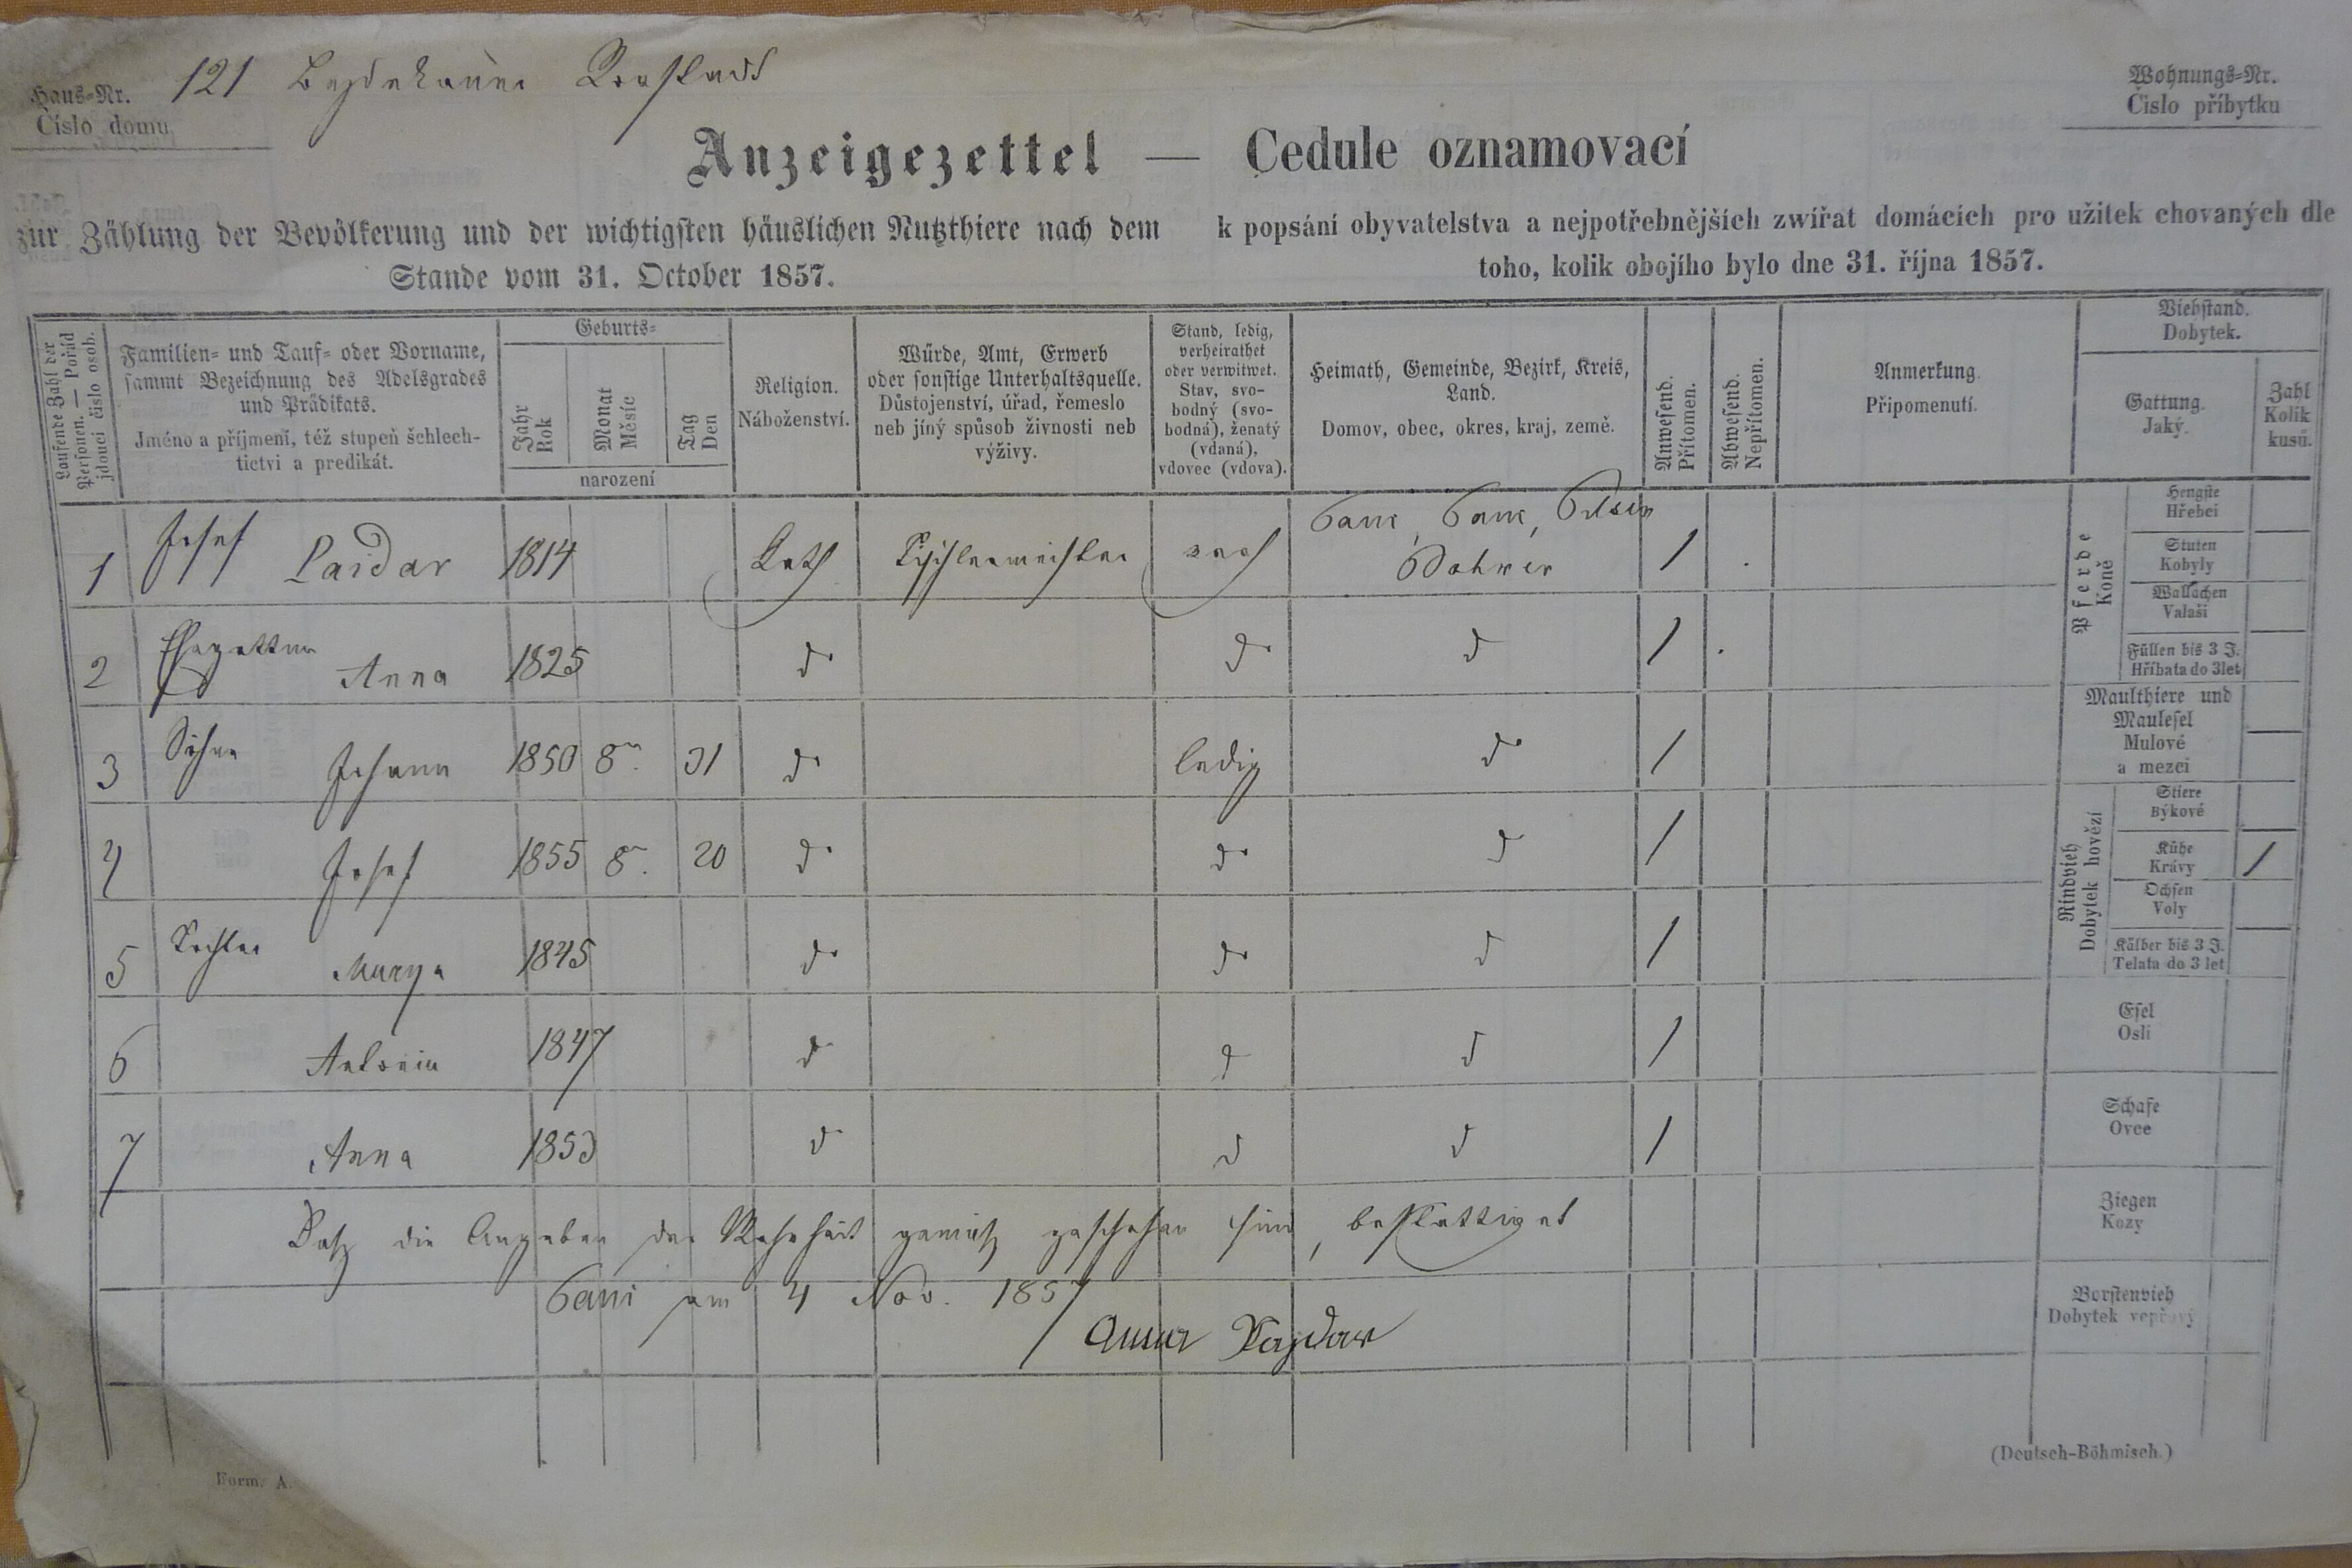 Haus-Nr. 121
Číslo domu
Wohnungs-Nr.
Číslo příbytku
Anzeigezettel — Cedule oznamovací
zur Zählung der Bevölkerung und der wichtigsten häuslichen Nutzthiere nach dem
Stande vom 31. October 1857.
k popsání obyvatelstva a nejpotřebnějších zwířat domácích pro užitek chovaných dle
toho, kolik obojího bylo dne 31. října 1857.
Laufende Zahl der
Personen. — Pořád
jdoucí číslo osob.
Familien- und Tauf- oder Vorname,
sammt Bezeichnung des Adelsgrades
und Prädikats.
Jméno a příjmení, též stupeň šchlech-
tictvi a predikát.
Geburts-
Jahr
Rok
Monat
Měsíc
Tag
Den
narození
Religion.
Náboženství.
Würde, Amt, Erwerb
oder sonstige Unterhaltsquelle.
Důstojenství, úřad, řemeslo
neb jíný spůsob živnosti neb
výživy.
Stand, ledig,
verheirathet
oder verwitwet.
Stav, svo-
bodný (svo-
bodná), ženatý
(vdaná),
vdovec (vdova).
Heimath, Gemeinde, Bezirk, Kreis,
Land.
Domov, obec, okres, kraj, země.
Anwesend.
Přítomen.
Abwesend.
Nepřítomen.
Anmerkung.
Připomenutí.
Viehstand.
Dobytek.
Gattung.
Jaký.
Zahl
Kolik
kusů.
1 Josef Paidar 1814 Kath Tischlermeister Pilsen /
2 Ehegattin Anna 1825 do do d /
3 Söhne Johann 1850 8r. 31 do ledig do /
4 Josef 1855 8r. 20 do do d /
5 Tochter Marya 1845 do do d /
6 Antonia 1847 d d d /
7 Anna 1853 d d d /
Daß die Angaben der Wahrheit gemäß geschehen sind, bestättiget
am 4 Nov. 1857
Anna Pajdar
Pferde
Koně
Hengste
Hřebci
Stuten
Kobyly
Wallachen
Valaši
Füllen bis 3 J.
Hříbata do 3 let
Maulthiere und
Maulesel
Mulové
a mezci
Rindvieh
Dobytek hovězí
Stiere
Býkové
Kühe
Krávy /
Ochsen
Voly
Kälber bis 3 J.
Telata do 3 let
Esel
Osli
Schafe
Ovce
Ziegen
Kozy
Borstenvieh
Dobytek vepřový
Form. A.
(Deutsch-Böhmisch.)